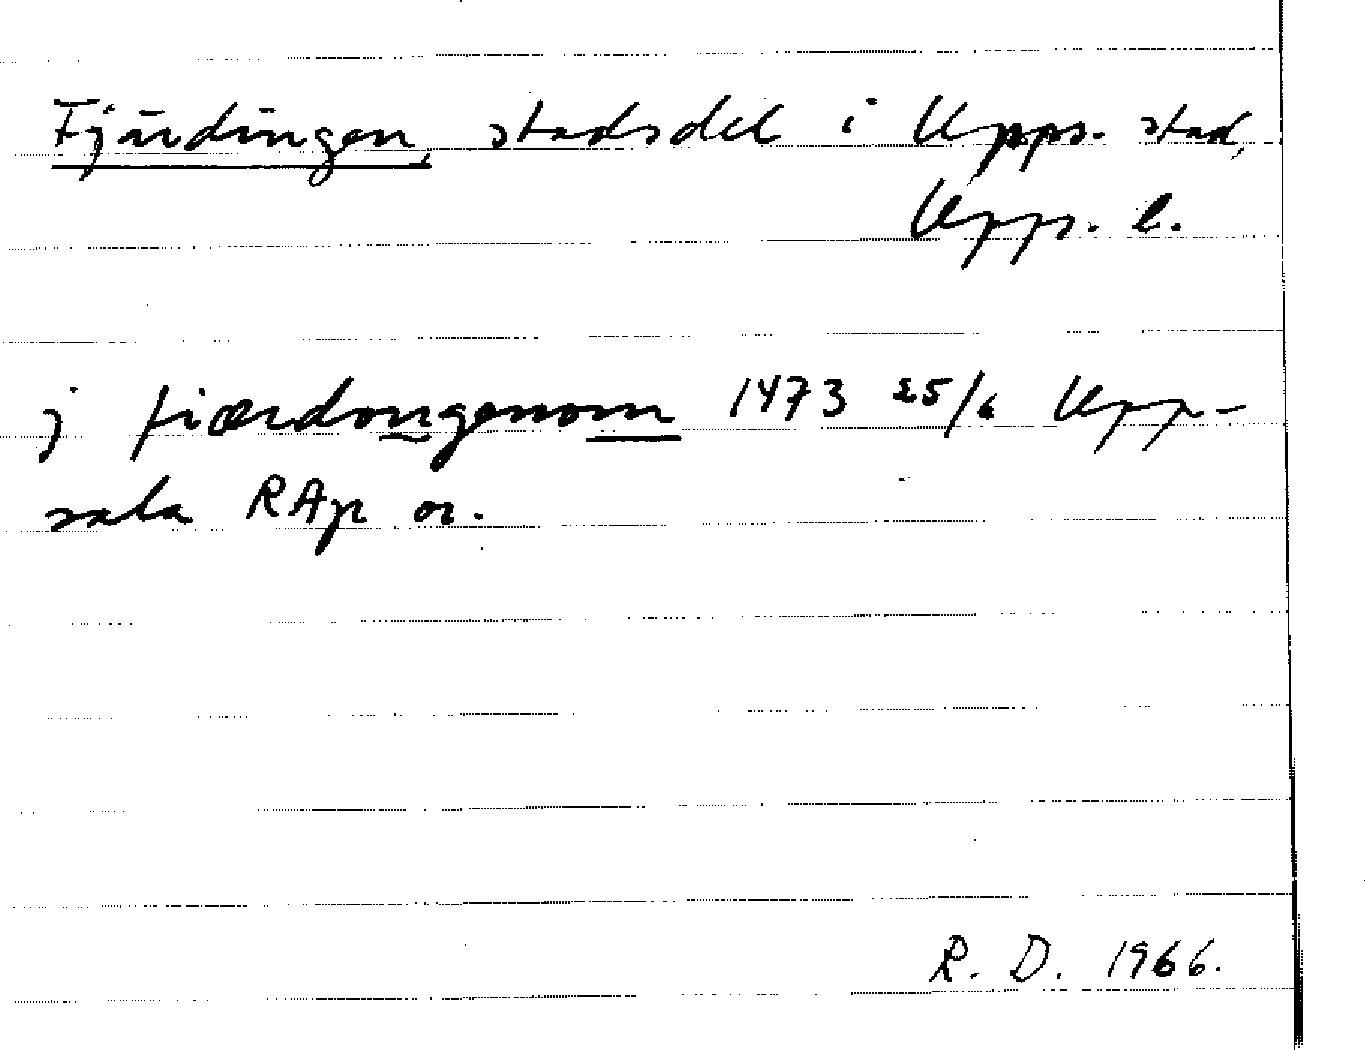 Fjärdingen, stadsdel i Upps. stad,
Upps. l.
j fiærdongenom 1473 25/6 Upp-
sala RAp or.
R. D. 1966.